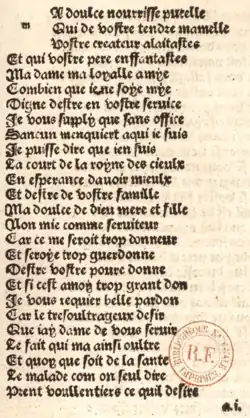 A doulce nourrisse pucelle
m Qui de vostre tendre mamelle
Vostre createur alaitastes
Et qui vostre pere enffantastes
Ma dame ma loyalle amye
Combien que ie ne soye mye
Digne destre en vostre service
Je vous supply que sans office
Sancun menquiert a qui ie suis
Je puisse dire que ien suis
La court de la royne des cieulx
En esperance dauoir mieulx
Et destre de vostre famille
Ma doulce de dieu mere et fille
Non mie comme seruiteur
Car ce me seroit trop donneur
Et seroye trop guerdonne
Destre vostre poure donne
Et si cest a moy trop grant don
Je vous requier belle pardon
Car le tresoultrageux desir
Que iay dame de vous seruir
Le fait qui ma ainsi oultre
Et quoy que soit de la sante
Le malade com on seul dire
Prent voullentiers ce quil desire
a.i.
BIBLIOTHEQUE NATIONALE
R.F.
IMPRIMES